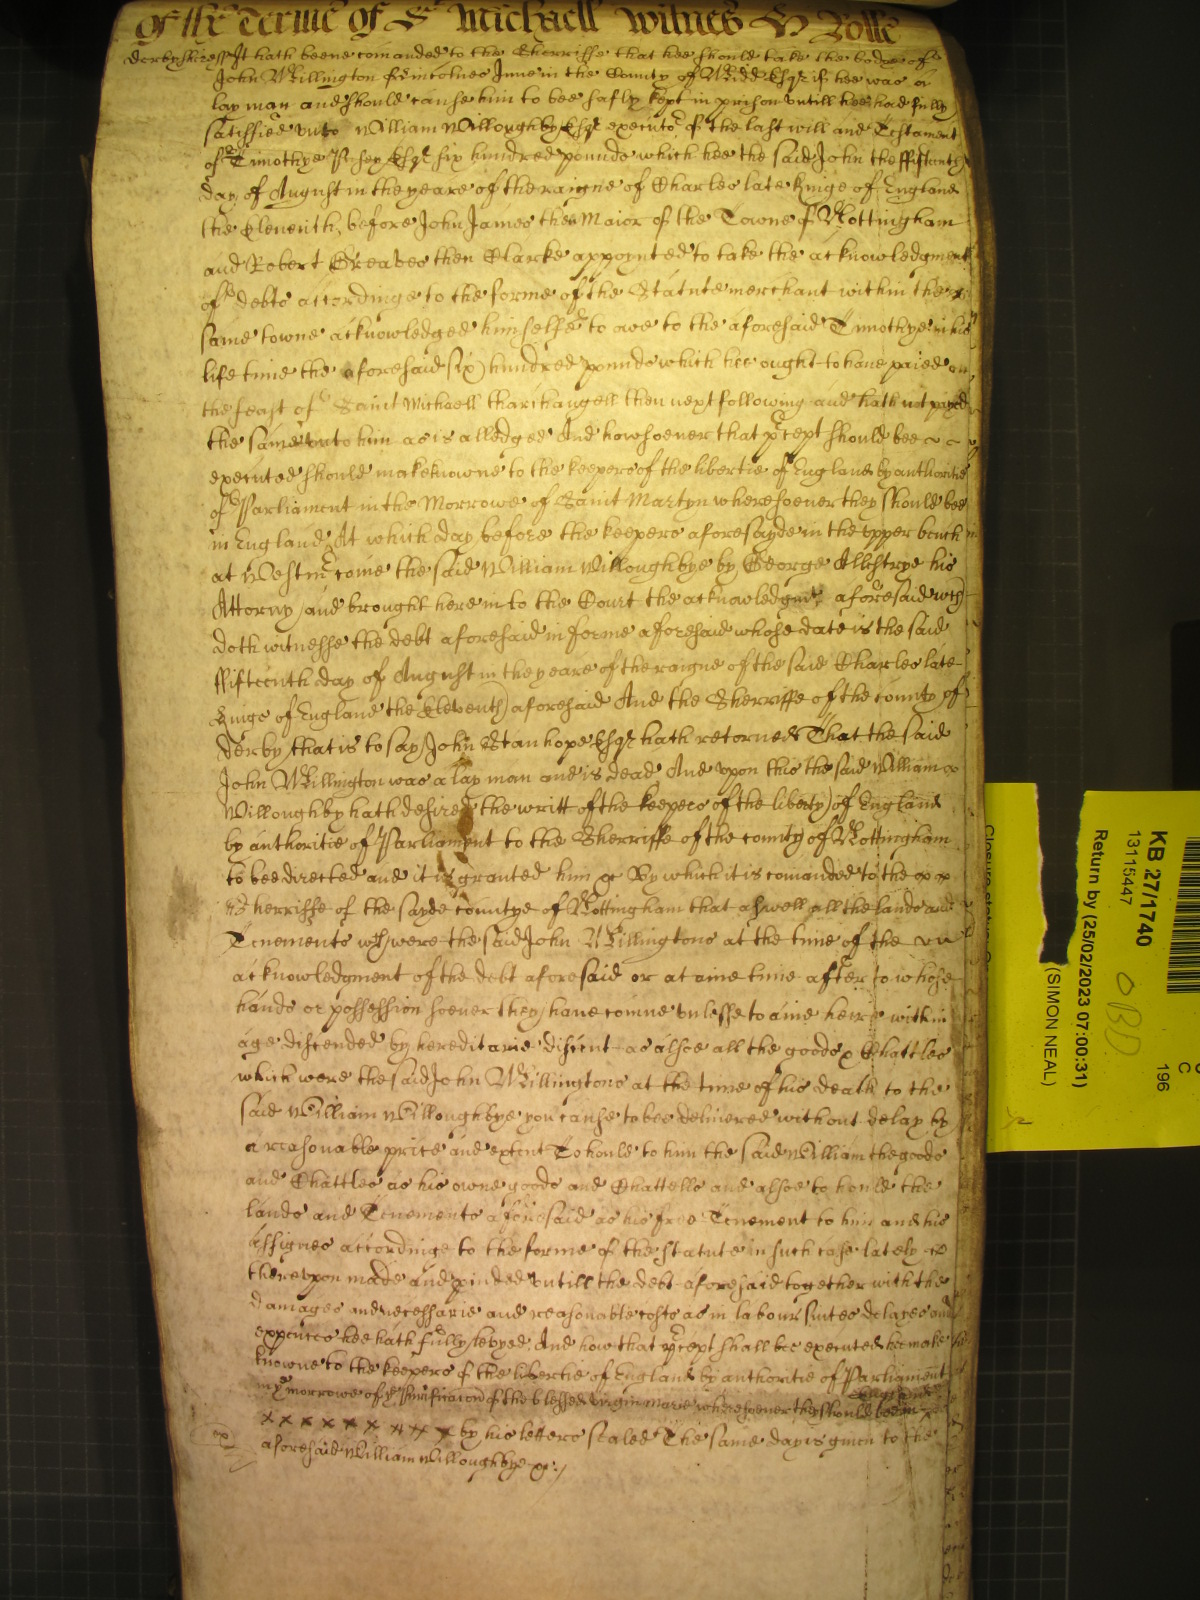 of the Terme of St Michaell Witnes H Rolle
Derbyshire ss It hath beene comanded to the Sherriffe that hee should take the bodye of
John Willington Esqr if hee was a
lay man and should cause him to bee safly kept in prison untill hee had fully
satisfied unto William Willoughby Esqr executor of the last will and Testament
of Timothye Pusey Esqr six hundred pounds which hee the said John the ffifteenth
day of August in the yeare of the raigne of Charles late Kinge of England
the Eleventh before John James then Maior of the Towne of Nottingham
and Robert Greaves then Clarke appoynted to take the acknowledgment
of debts accordinge to the forme of the Statute merchant within the
same towne acknowledged himselfe to owe to the aforesaid Timothye in his
life time the aforesaid six hundred pounds which hee ought to have paied on
the feast of Saint Michaell tharchangell then next following and hath not payed
the same unto him as is alledged And howsoever that precept should bee
executed should make knowne to the keepers of the libertie of England by authoritie
of Parliament in the Morrowe of Saint Martyn wheresoever they should bee
in England At which day before the keepers aforesayde in the upper bench
at Westmr come the said William Willoughbye by George Allestrye his
Attorny and brought here into the Court the acknowledgmt aforesaid wch
doth witnesse the debt aforesaid in forme aforesaid whose date is the said
ffifteenth day of August in the yeare of the raigne of the said Charles late
Kinge of England the Eleventh aforesaid And the Sherriffe of the county of
Derby that is to say John Stanhope Esqr hath retorned That the said
John Willington was a lay man and is dead And upon this the said William
Willoughby hath desired the writt of the keepers of the liberty of England
by authoritie of Parliament to the Sherriffe of the county of Nottingham
to bee directed and it is granted him &c By which it is comanded to the
Sherriffe of the sayde countye of Nottingham that aswell all the lands and
Tenements wch were the said John Willingtons at the time of the
acknowledgment of the debt aforesaid or at anie time after to whose
hands or possession soever they have comne unlesse to anie heire within
age discended by hereditarie discent as alsoe all the goods & Chattles
which were the said John Willingtons at the time of his death to the
said William Willoughbye you cause to bee delivered without delay by
a reasonable price and extent To hould to him the said William the goods
and Chattles as his owne goods and Chattells and alsoe to hould the
lands and Tenements aforesaid as his free Tenement to him and his
Assignes accordinge to the forme of the statute in such case lately
thereupon made and pvided untill the debt aforesaid together with the
damages and necessarie and reasonable costs as in labour suites delayes and
expences hee hath fully levyed And how that precept shall bee executed hee make
knowne to the keepers of the libertie of England by authoritie of Parliament
in ye morrowe of ye Purificacion of the blessed virgin Marie wheresoever they should bee in England
x x x x x x x x x x by his letters sealed The same day is given to the
aforesaid William Willoughbye &c:/
KB 27/1740
13115447
Return by (25/02/2023 07:00:31)
(SIMON NEAL)
C
196
OBD